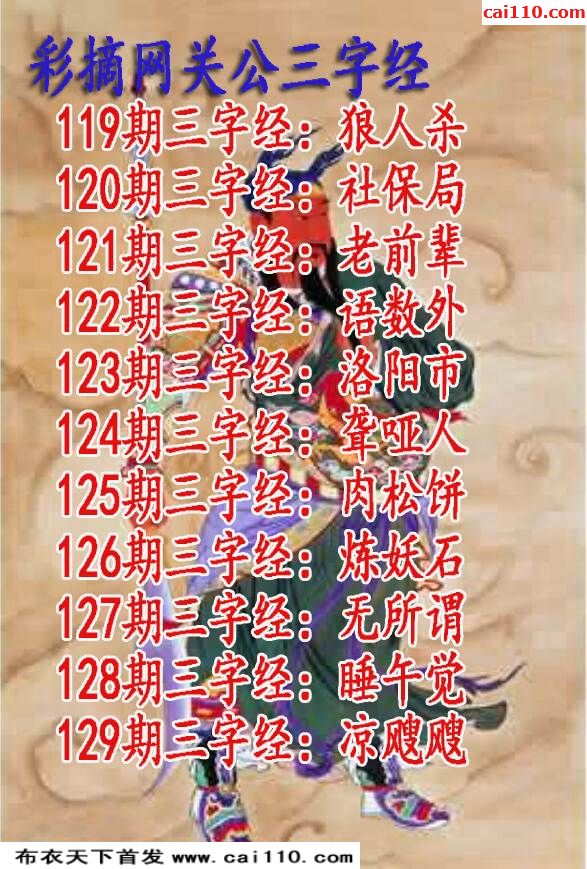 cai110.com
彩摘网关公三字经
119期三字经：狼人杀
120期三字经：社保局
121期三字经：老前辈
122期三字经：语数外
123期三字经：洛阳市
124期三字经：聋哑人
125期三字经：肉松饼
126期三字经：炼妖石
127期三字经：无所谓
128期三字经：睡午觉
129期三字经：凉飕飕
布衣天下首发 www.cai110.com